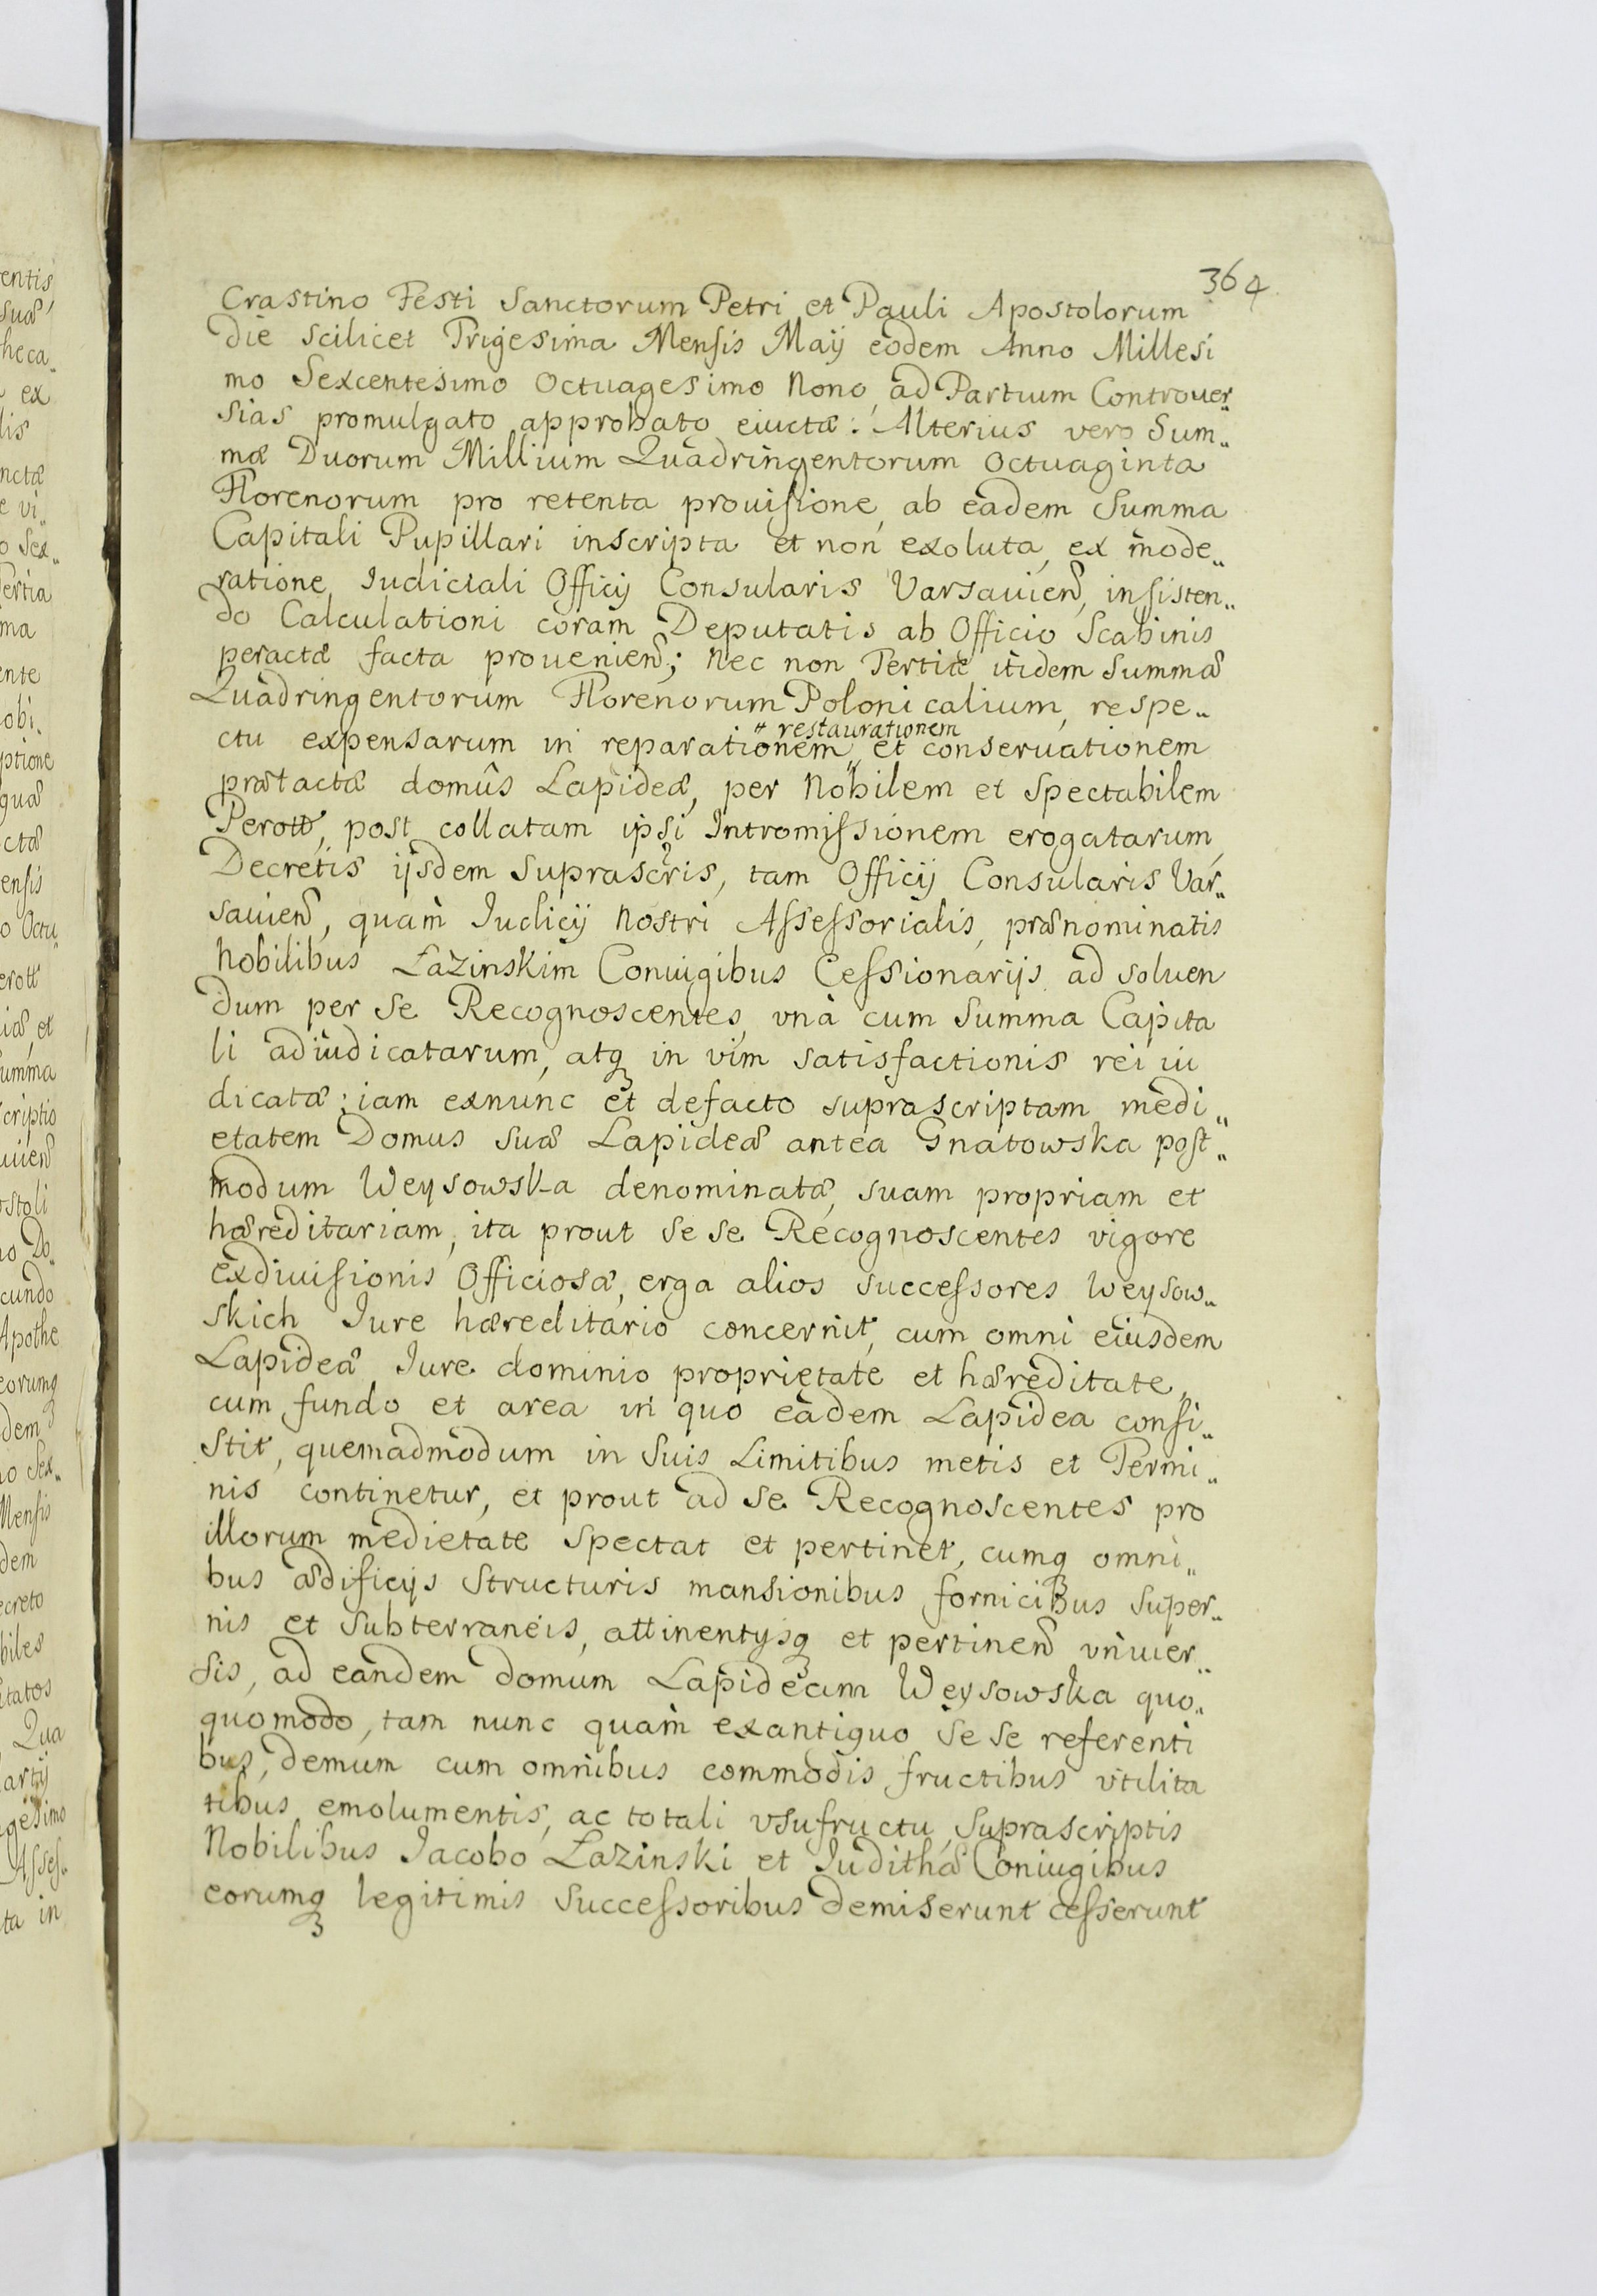 364
Crastino Festi Sanctorum Petri et Pauli Apostolorum
die scilicet Trigesima Mensis Maij eodem Anno Millesi
mo Sexcentesimo Octuagesimo Nono, ad Partium Controuer„
sias promulgato approbato euictæ: Alterius vero Sum„
mæ Duorum Millium Quadringentorum Octuaginta
Florenorum pro retenta prouisione, ab eadem Summa
Capitali Pupillari inscripta et non exoluta, ex mode„
ratione Iudiciali Officij Consularis Varsauien, insisten„
do Calculationi coram Deputatis ab Officio Scabinis
peractæ facta prouenien; Nec non Tertiæ itidem Summæ
Quadringentorum Florenorum Polonicalium, respe„
ctu expensarum in reparationem „ restaurationem et conseruationem
prætactæ domûs Lapideæ, per Nobilem et Spectabilem
Perott, post collatam ipsi Intromissionem erogatarum,
Decretis ijsdem suprascris, tam Officij Consularis Var„
sauien, quam Iudicij Nostri Assessorialis, prænominatis
Nobilibus Łazinskim Coniugibus Cessionarijs ad soluen
dum per se Recognoscentes, vnà cum Summa Capita
li adiudicatarum, atq in vim satisfactionis rei iu
dicatæ; iam exnunc et defacto suprascriptam medi„
etatem Domus suæ Lapideæ antea Gnatowska post„
modum Weysowska denominatæ, suam propriam et
hæreditariam, ita prout se se Recognoscentes vigore
exdiuisionis Officiosæ, erga alios successores Weysow„
skich Iure hæreditario concernit, cum omni eiusdem
Lapideæ Iure dominio proprietate et hæreditate,
cum fundo et area in quo eadem Lapidea consi„
stit, quemadmodum in suis Limitibus metis et Termi„
nis continetur, et prout ad se Recognoscentes pro
illorum medietate spectat et pertinet, cumq omni„
bus ædificijs structuris mansionibus fornicibus super„
nis et subterraneis, attinentysq et pertinen vniuer„
sis, ad eandem domum Lapideam Weysowska quo„
quomodo, tam nunc quam exantiquo se se referenti
bus, demum cum omnibus commodis fructibus vtilita
tibus emolumentis, ac totali vsufructu, suprascriptis
Nobilibus Iacobo Łazinski et Iudithæ Coniugibus
eorumq legitimis Successoribus demiserunt cesserunt